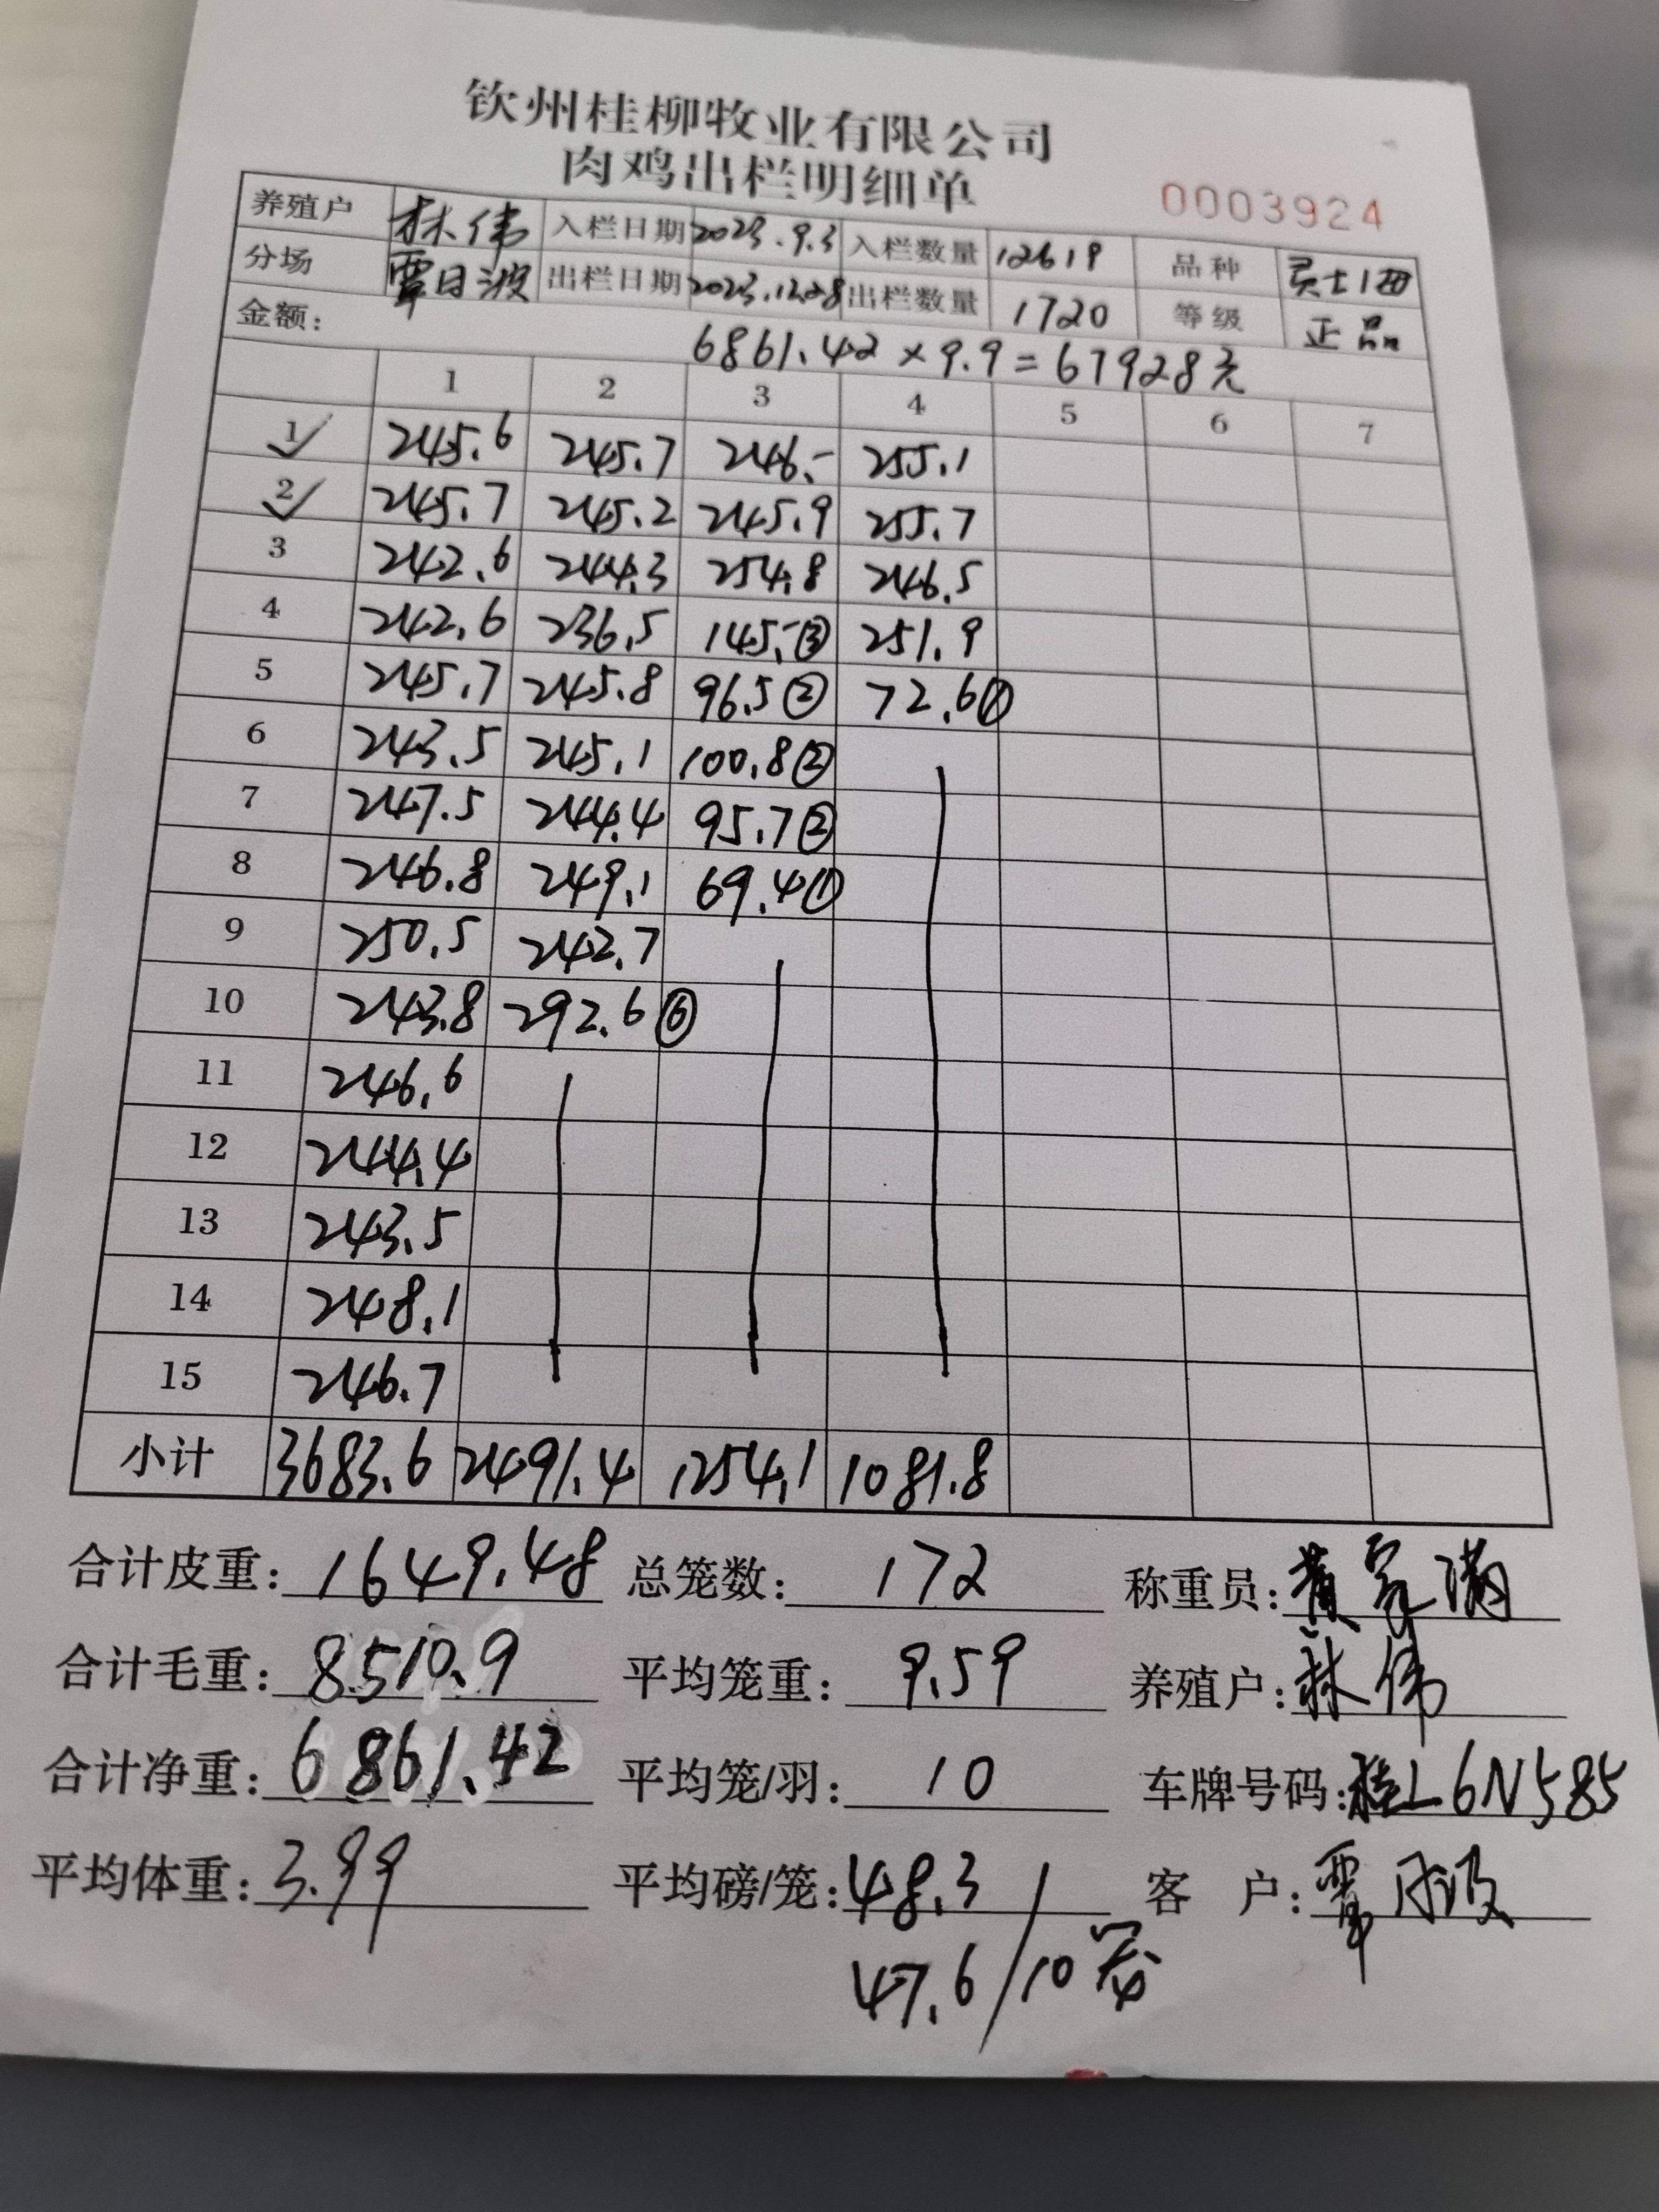 钦州桂柳牧业有限公司
肉鸡出栏明细单
0003924
养殖户 林伟 入栏日期 2023.9.3 入栏数量 12619 品种
分场 覃日波 出栏日期 2023.12.28 出栏数量 1720 等级 正品
金额: 6861.42×9.9=67928元
1 2 3 4 5 6 7
1 ✓ 245.6 245.7 246.- 255.1
2 ✓ 245.7 245.2 245.9 255.7
3 242.6 244.3 254.8 246.5
4 242.6 236.5 145.-③ 251.9
5 245.7 245.8 96.5② 72.6①
6 243.5 245.1 100.8②
7 247.5 244.4 95.7②
8 246.8 249.1 69.4①
9 250.5 242.7
10 243.8 292.6⑥
11 246.6
12 244.4
13 243.5
14 248.1
15 246.7
小计 3683.6 2491.4 1254.1 1081.8
合计皮重: 1649.48 总笼数: 172 称重员: 黄家满
合计毛重: 8510.9 平均笼重: 9.59 养殖户: 林伟
合计净重: 6861.42 平均笼/羽: 10 车牌号码: 桂L6N585
平均体重: 3.99 平均磅/笼: 48.3 客 户: 覃日波
47.6/10